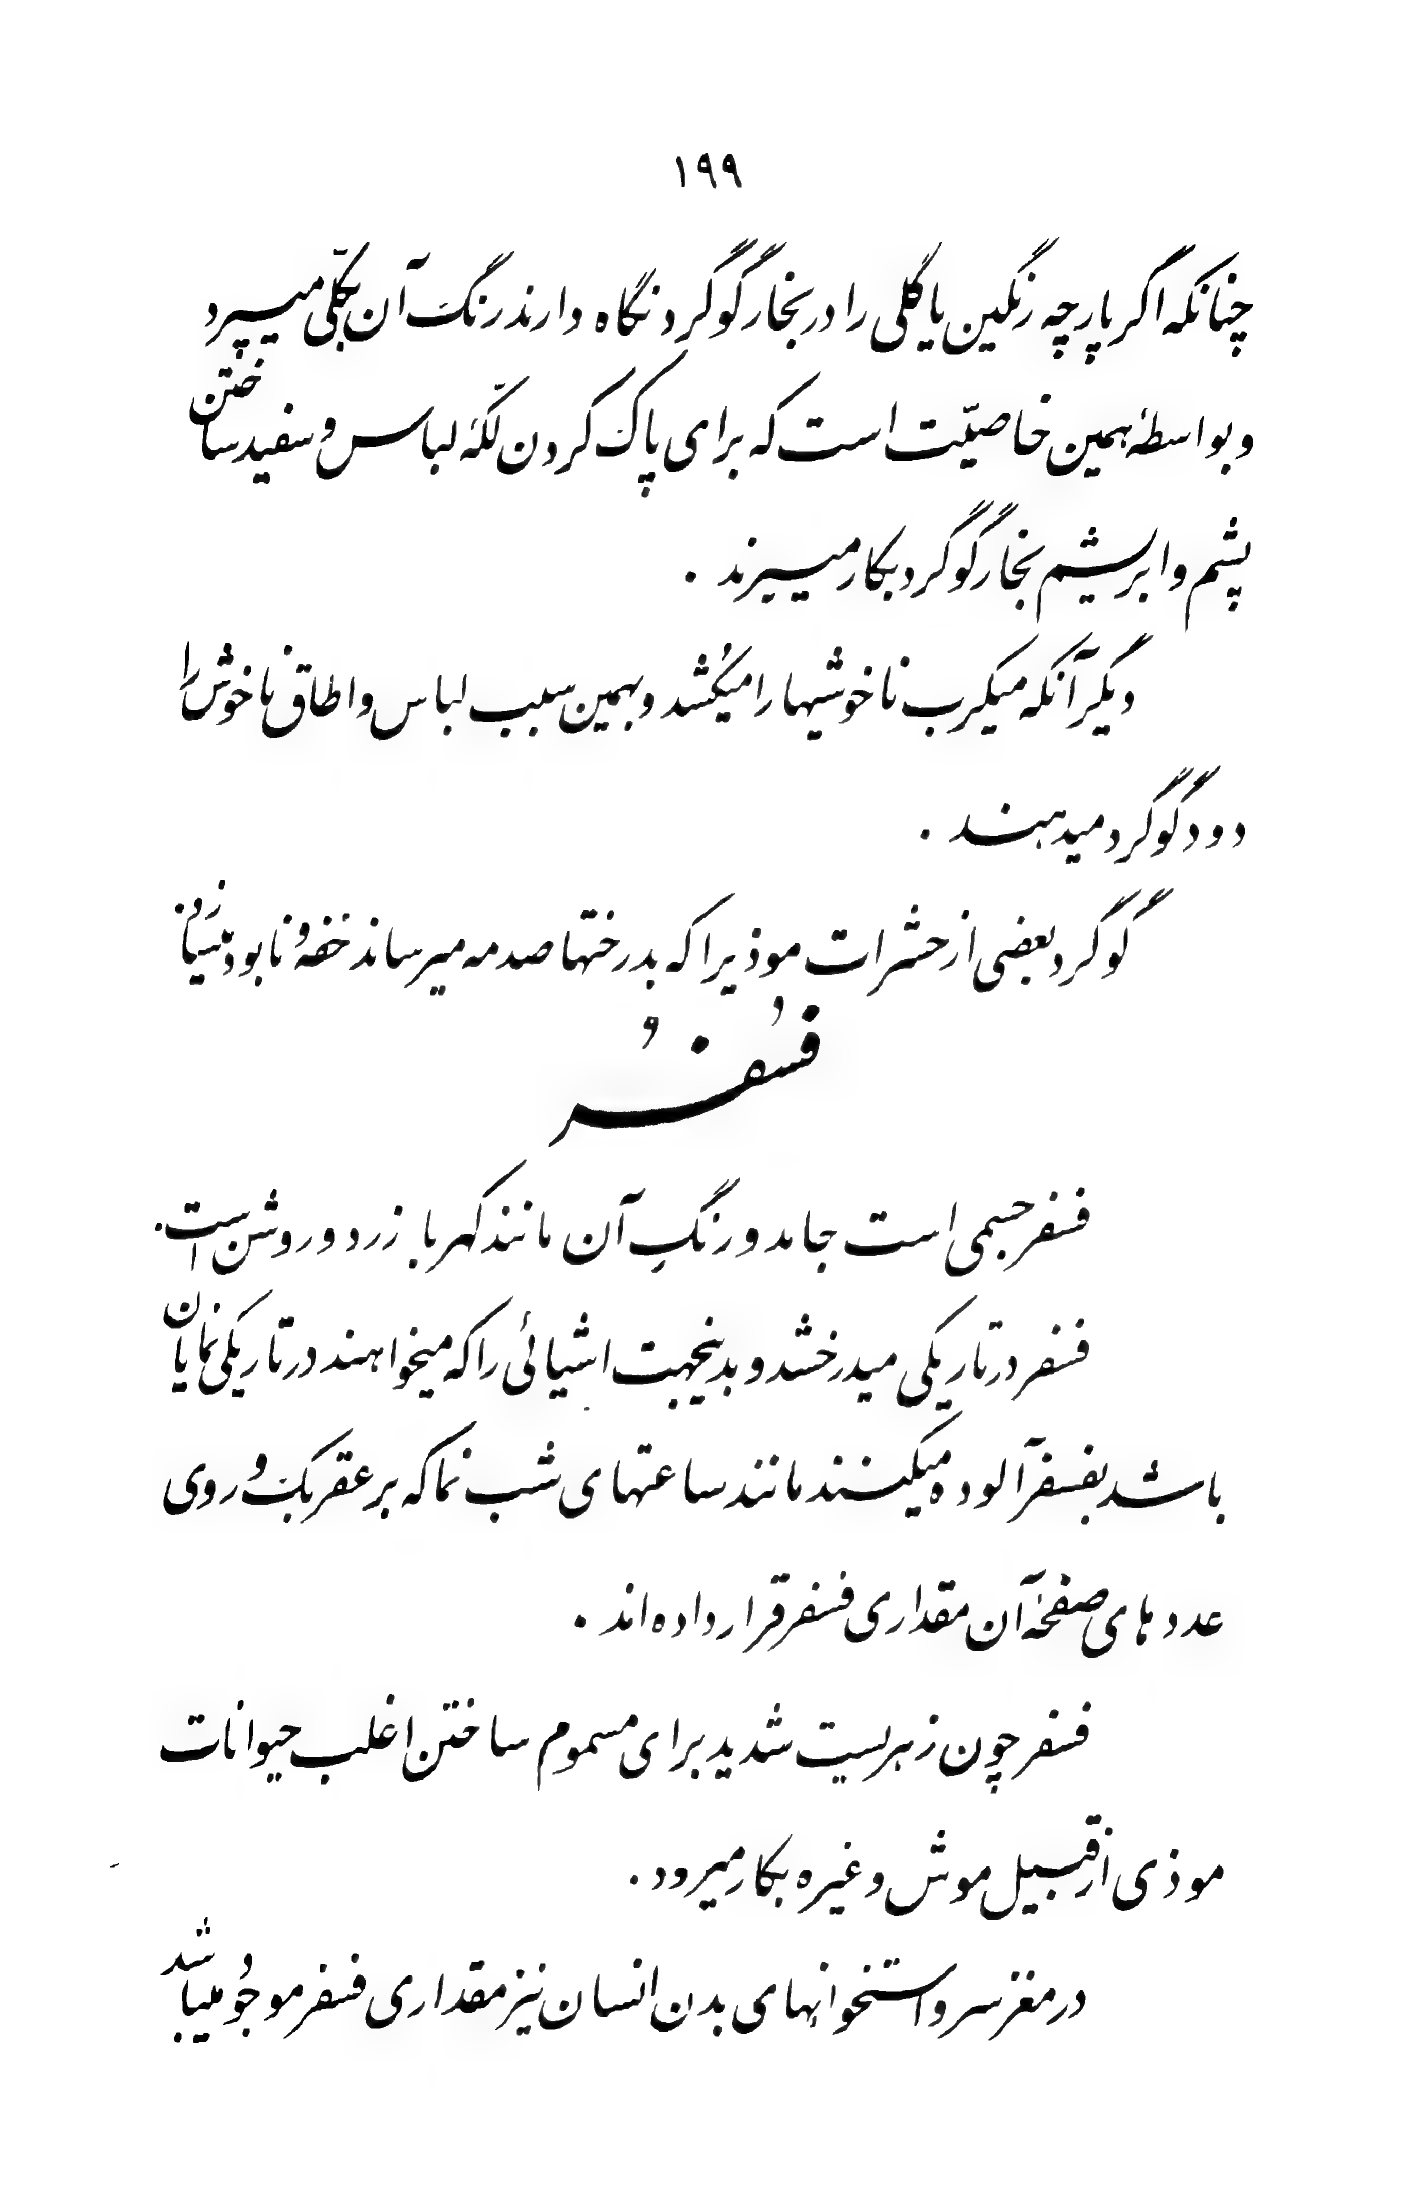 ۱۹۹
چنانکه اگر پارچه رنگین یا گلی را در بخار گوگرد نگاه دارند رنگ آن بکلّی میپرد
و بواسطهٔ همین خاصیّت است که برای پاک کردن لکّهٔ لباس و سفید ساختن
پشم و ابریشم بخار گوگرد بکار میبرند .
دیگر آنکه میکرب ناخوشیها را میکُشد و بهمین سبب لباس و اطاق ناخوش را
دود گوگرد میدهند .
گوگرد بعضی از حشرات موذیرا که بدرختها صدمه میرساند خفه و نابود مینماید .
فُسفُر
فسفر جسمی است جامد و رنگِ آن مانند کهربا زرد و روشن است .
فسفر در تاریکی میدرخشد و بدینجهت اشیائی را که میخواهند در تاریکی نمایان
باشد بفسفر آلوده میکنند مانند ساعتهای شب نما که بر عقربک و روی
عددهای صفحهٔ آن مقداری فسفر قرار داده اند .
فسفر چون زهریست شدید برای مسموم ساختن اغلب حیوانات
موذی از قبیل موش و غیره بکار میرود .
در مغز سر و استخوانهای بدن انسان نیز مقداری فسفر موجود میباشد